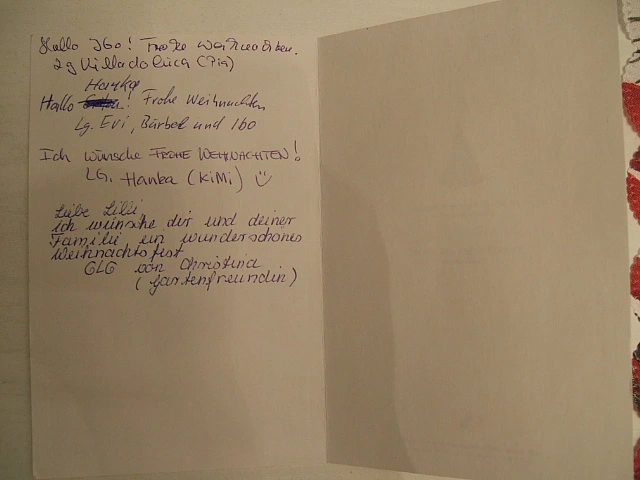 Hallo Ibo! Frohe Weihnachten.
Lg Villadoluca (Pia)
Hanka
Hallo ! Frohe Weihnachten
Lg. Evi, Bärbel und Ibo
Ich wünsche FROHE WEIHNACHTEN!
LG. Hanka (KiMi)
Liebe Lilli
ich wünsche dir und deiner
Familie ein wunderschönes
Weihnachtsfest
GLG von Christina
(Gartenfreundin)